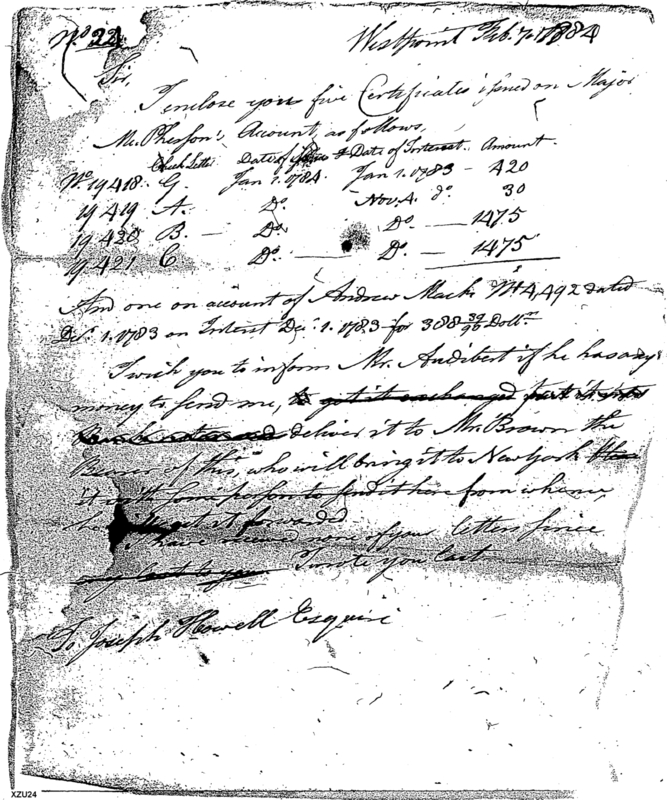 No. 22 Westpoint Feb. 7. 1784
Sir,
I enclose you five Certificates issued on Major
McPherson's Account, as follows,
Check Letter Date of & Date of Interest. Amount
No. 19418. G. Jan 1. 1784. Jan 1. 1783 - 420
19419 A. Do Nov. 4. do. 30
19420 B. - Do Do - 1475
19.421 C Do. - Do. - 1475
And one on account of Andrew Mack No 4,492 dated
1. 1783 on Interest Dec. 1. 1783 for 388 Doll.rs
I wish you to inform Mr. Audibert if he has any
money to send me, to get it exchanged
deliver it to Mr. Brown the
Bearer of this, who will bring it to New York
it with some person to send it here from whence
get it forwarded
I have received none of your letters since
my last to you I wrote you last
To Joseph Howell Esquire
XZU24